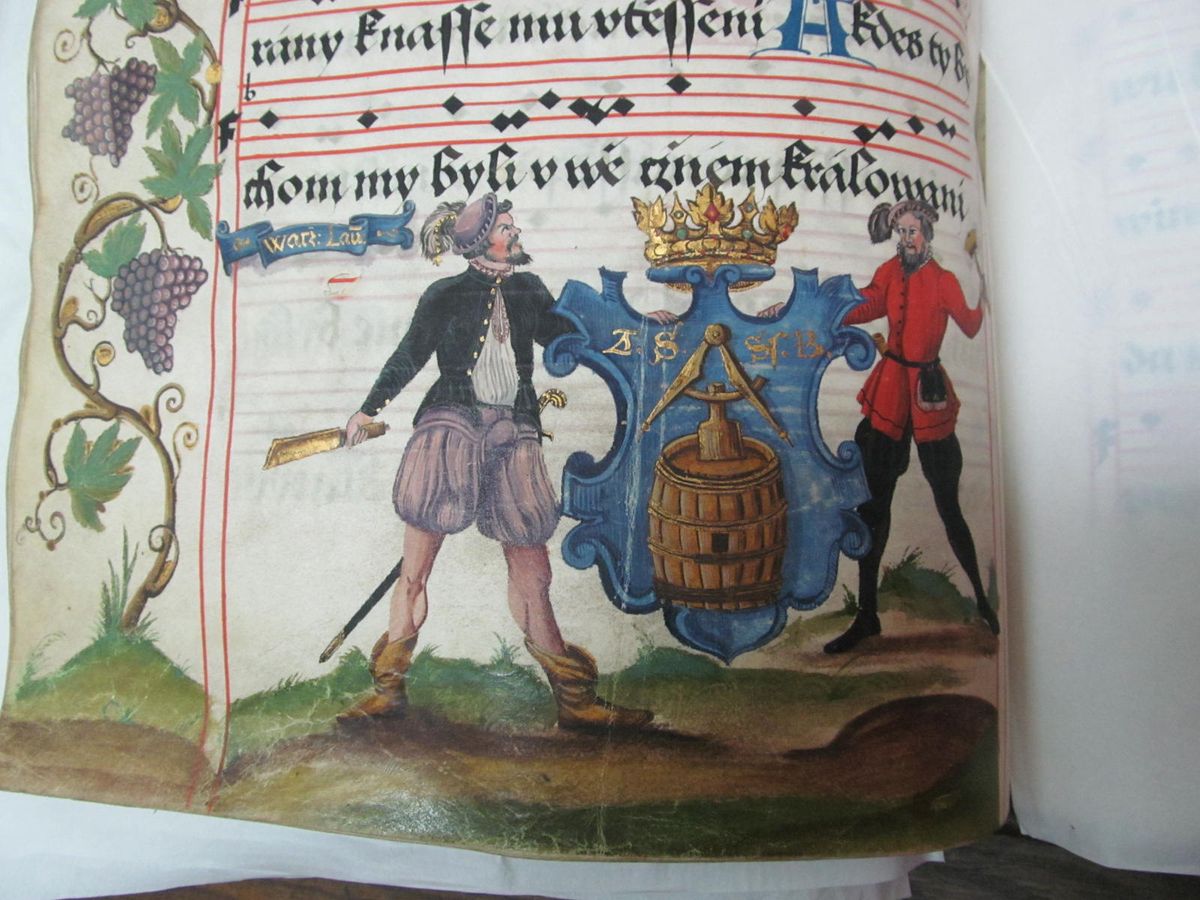 rány knasse mu vtěsseni A kdes ty b
chom my byli v wě cznem králowani
Wact: Lau